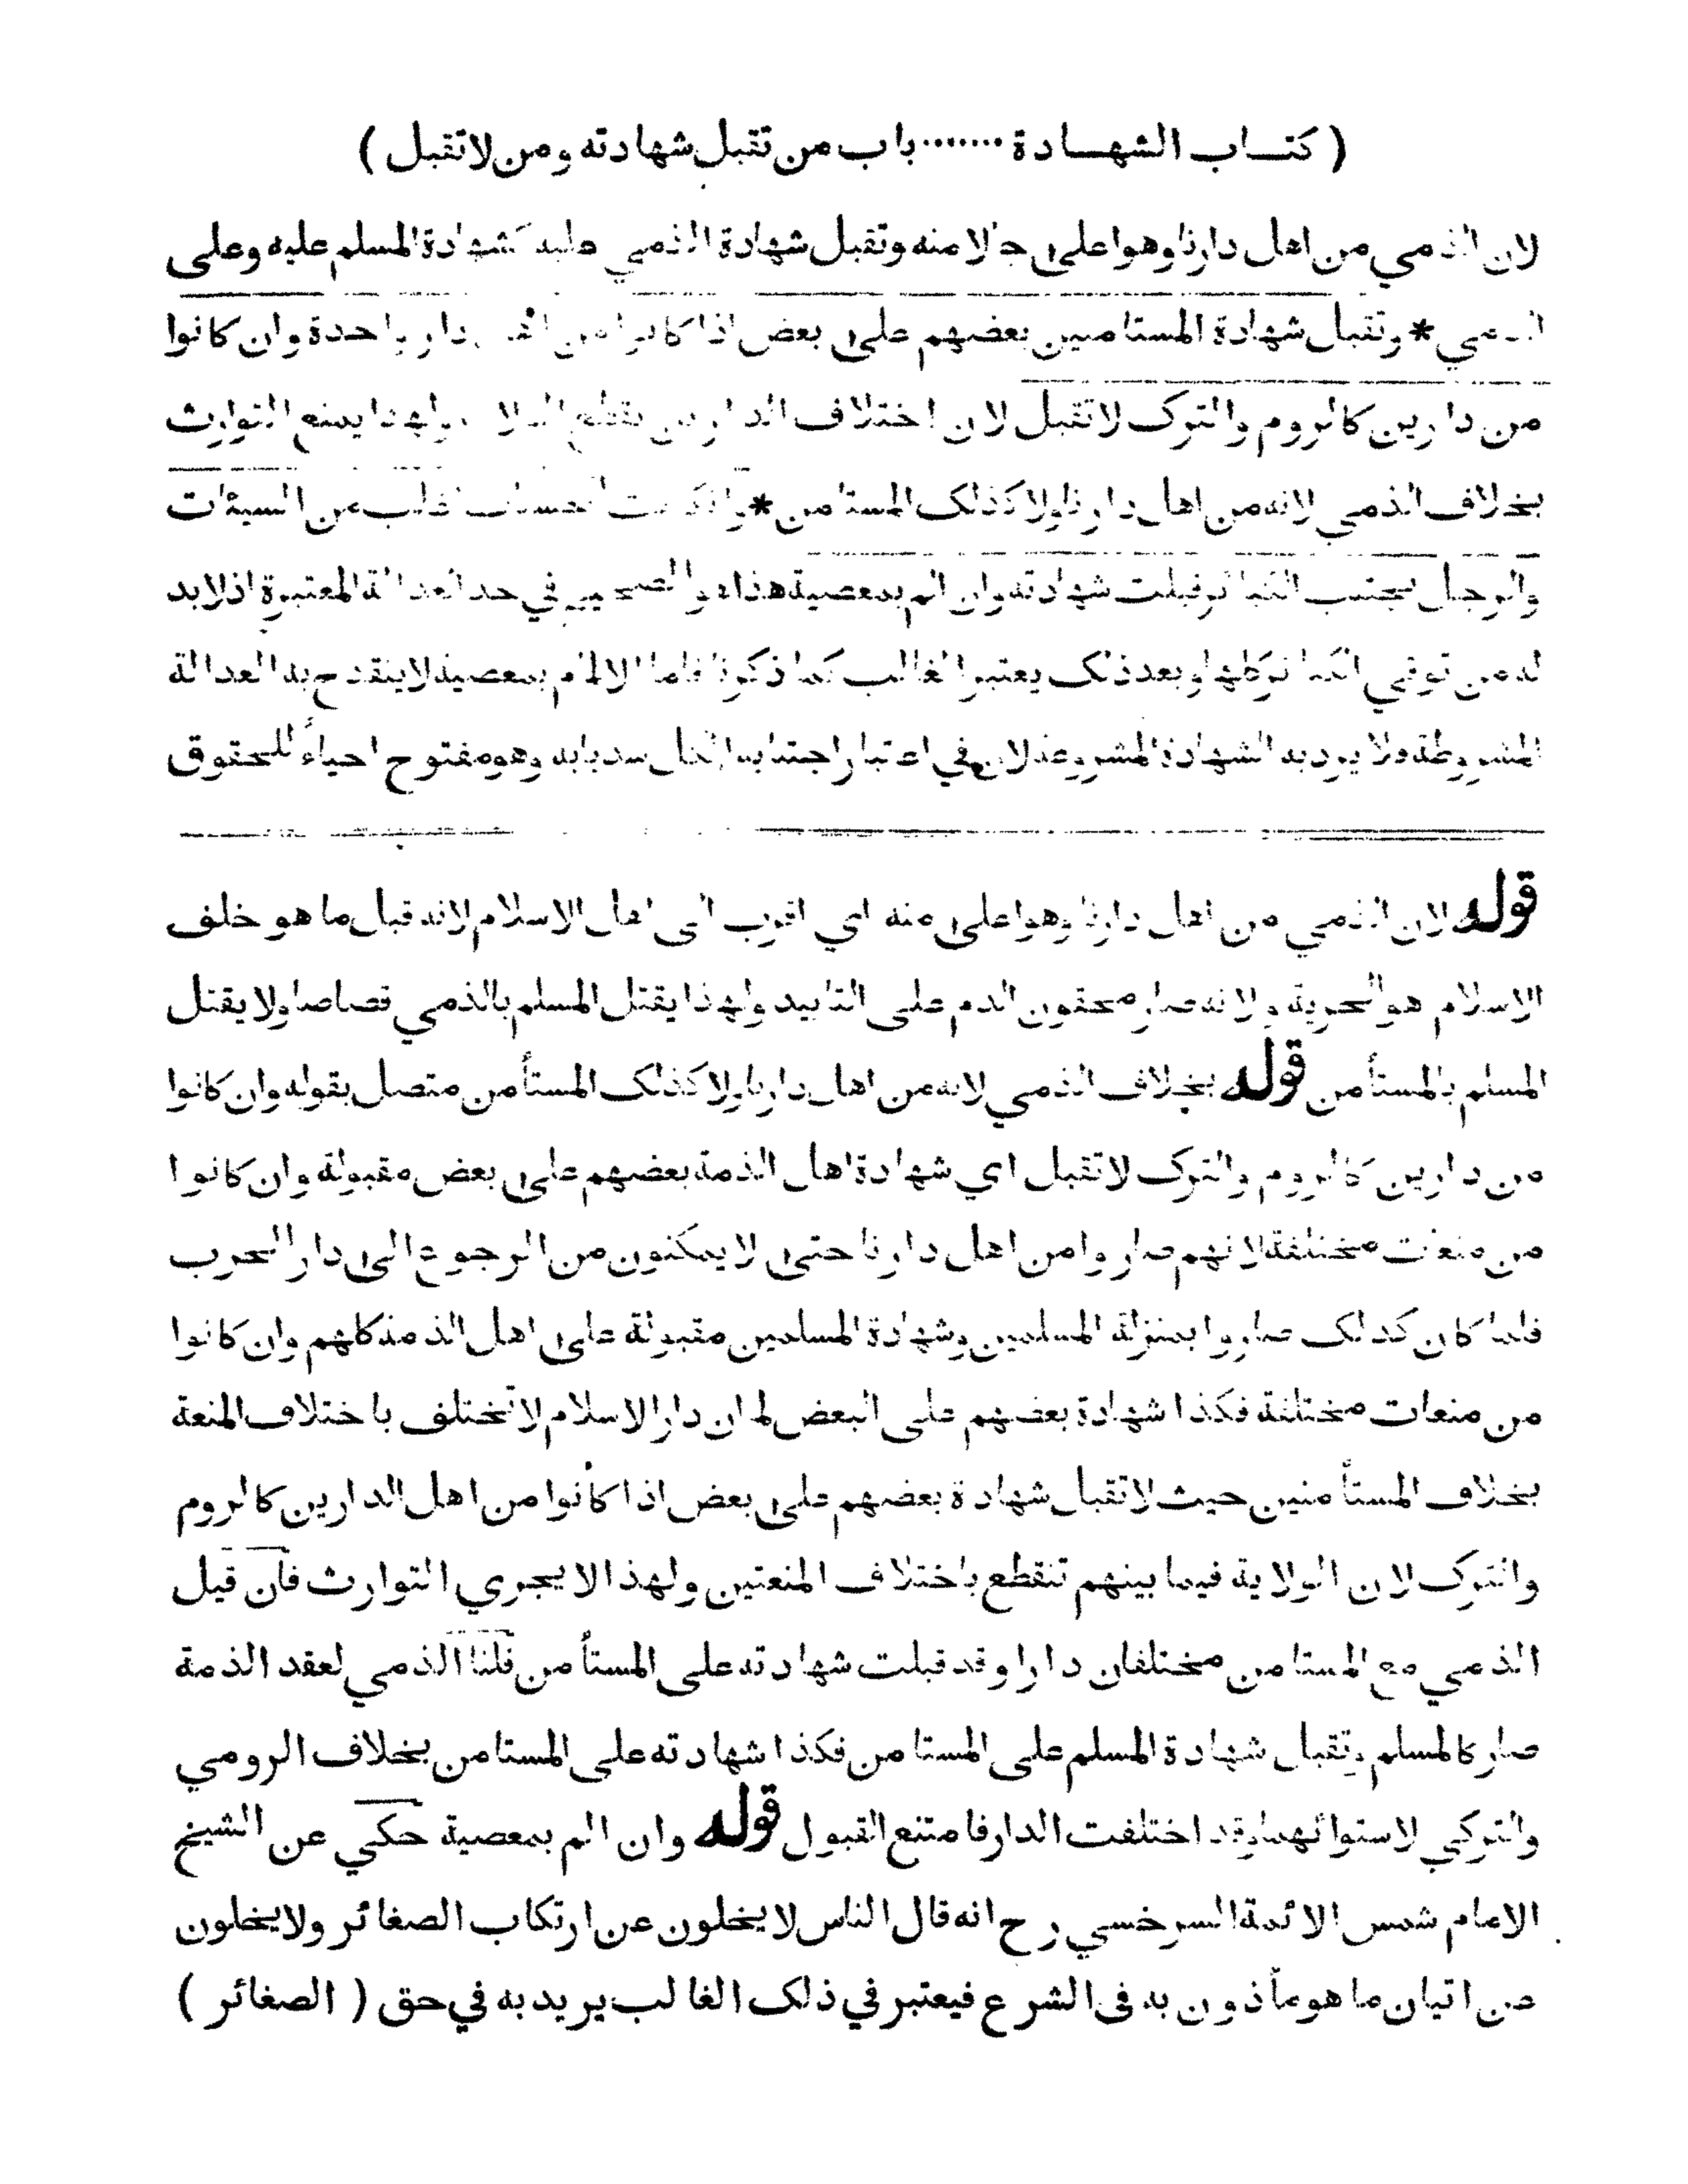 ( كتاب الشهادة ....... باب من تقبل شهادته ومن لا تقبل )
لان الذمي من اهل دارنا وهو اعلى حالا منه وتقبل شهادة الذمي عليه كشهادة المسلم عليه وعلى
الذمي * وتقبل شهادة المستامنين بعضهم على بعض اذا كانوا من اهل دار واحدة وان كانوا
من دارين كالروم والترك لا تقبل لان اختلاف الدارين يقطع الولاية ولهذا يمنع التوارث
بخلاف الذمي لانه من اهل دارنا ولا كذلك المستامن * وان كانت الحسنات اغلب من السيئات
والرجل يجتنب الكبائر قبلت شهادته وان الم بمعصية هذا هو الصحيح في حد العدالة المعتبرة اذ لا بد
له من توقي الكبائر كلها وبعد ذلك يعتبر الغالب كما ذكرنا فاما الالمام بمعصية لا ينقدح به العدالة
المشروطة فلا يرد به الشهادة المشروعة لان في اعتبار اجتنابه الكل سد بابه وهو مفتوح احياءً للحقوق
قوله لان الذمي من اهل دارنا وهو اعلى منه اي اقرب الى اهل الاسلام لانه قبل ما هو خلف
الاسلام هو الحرية ولانه صار محقون الدم على التابيد ولهذا يقتل المسلم بالذمي قصاصا ولا يقتل
المسلم بالمستأمن قوله بخلاف الذمي لانه من اهل دارنا ولا كذلك المستأمن متصل بقوله وان كانوا
من دارين كالروم والترك لا تقبل اي شهادة اهل الذمة بعضهم على بعض مقبولة وان كانوا
من منعات مختلفة لانهم صاروا من اهل دارنا حتى لا يمكنون من الرجوع الى دار الحرب
فلما كان كذلك صاروا بمنزلة المسلمين وشهادة المسلمين مقبولة على اهل الذمة كلهم وان كانوا
من منعات مختلفة فكذا شهادة بعضهم على البعض لما ان دار الاسلام لا تختلف باختلاف المنعة
بخلاف المستأمنين حيث لا تقبل شهادة بعضهم على بعض اذا كانوا من اهل الدارين كالروم
والترك لان الولاية فيما بينهم تنقطع باختلاف المنعتين ولهذا لا يجري التوارث فان قيل
الذمي مع المستامن مختلفان دارا وقد قبلت شهادته على المستأمن قلنا الذمي لعقد الذمة
صار كالمسلم وتقبل شهادة المسلم على المستامن فكذا شهادته على المستامن بخلاف الرومي
والتركي لاستوائهما وقد اختلفت الدار فامتنع القبول قوله وان الم بمعصية حكي عن الشيخ
الامام شمس الائمة السرخسي رح انه قال الناس لا يخلون عن ارتكاب الصغائر ولا يخلون
عن اتيان ما هو مأذون به فى الشرع فيعتبر في ذلك الغالب يريد به في حق ( الصغائر )